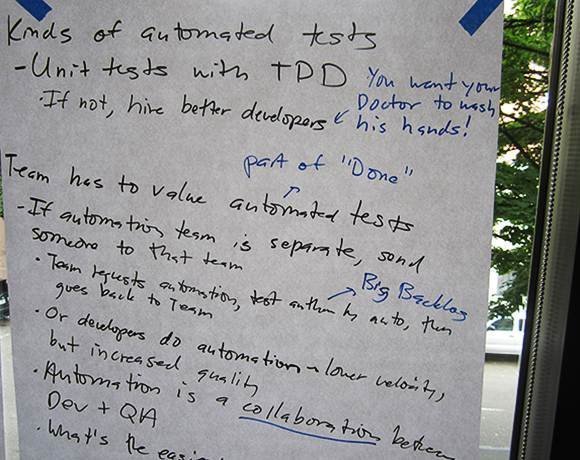 Kinds of automated tests
- Unit tests with TDD
· If not, hire better developers
You want your
Doctor to wash
his hands!
part of "Done"
Team has to value automated tests
- If automation team is separate, send
someone to that team
· Team requests automation, test by auto, then
goes back to Team
Big Backlog
· Or developers do automation - lower velocity,
but increased quality
· Automation is a collaboration between
Dev + QA
· What's the